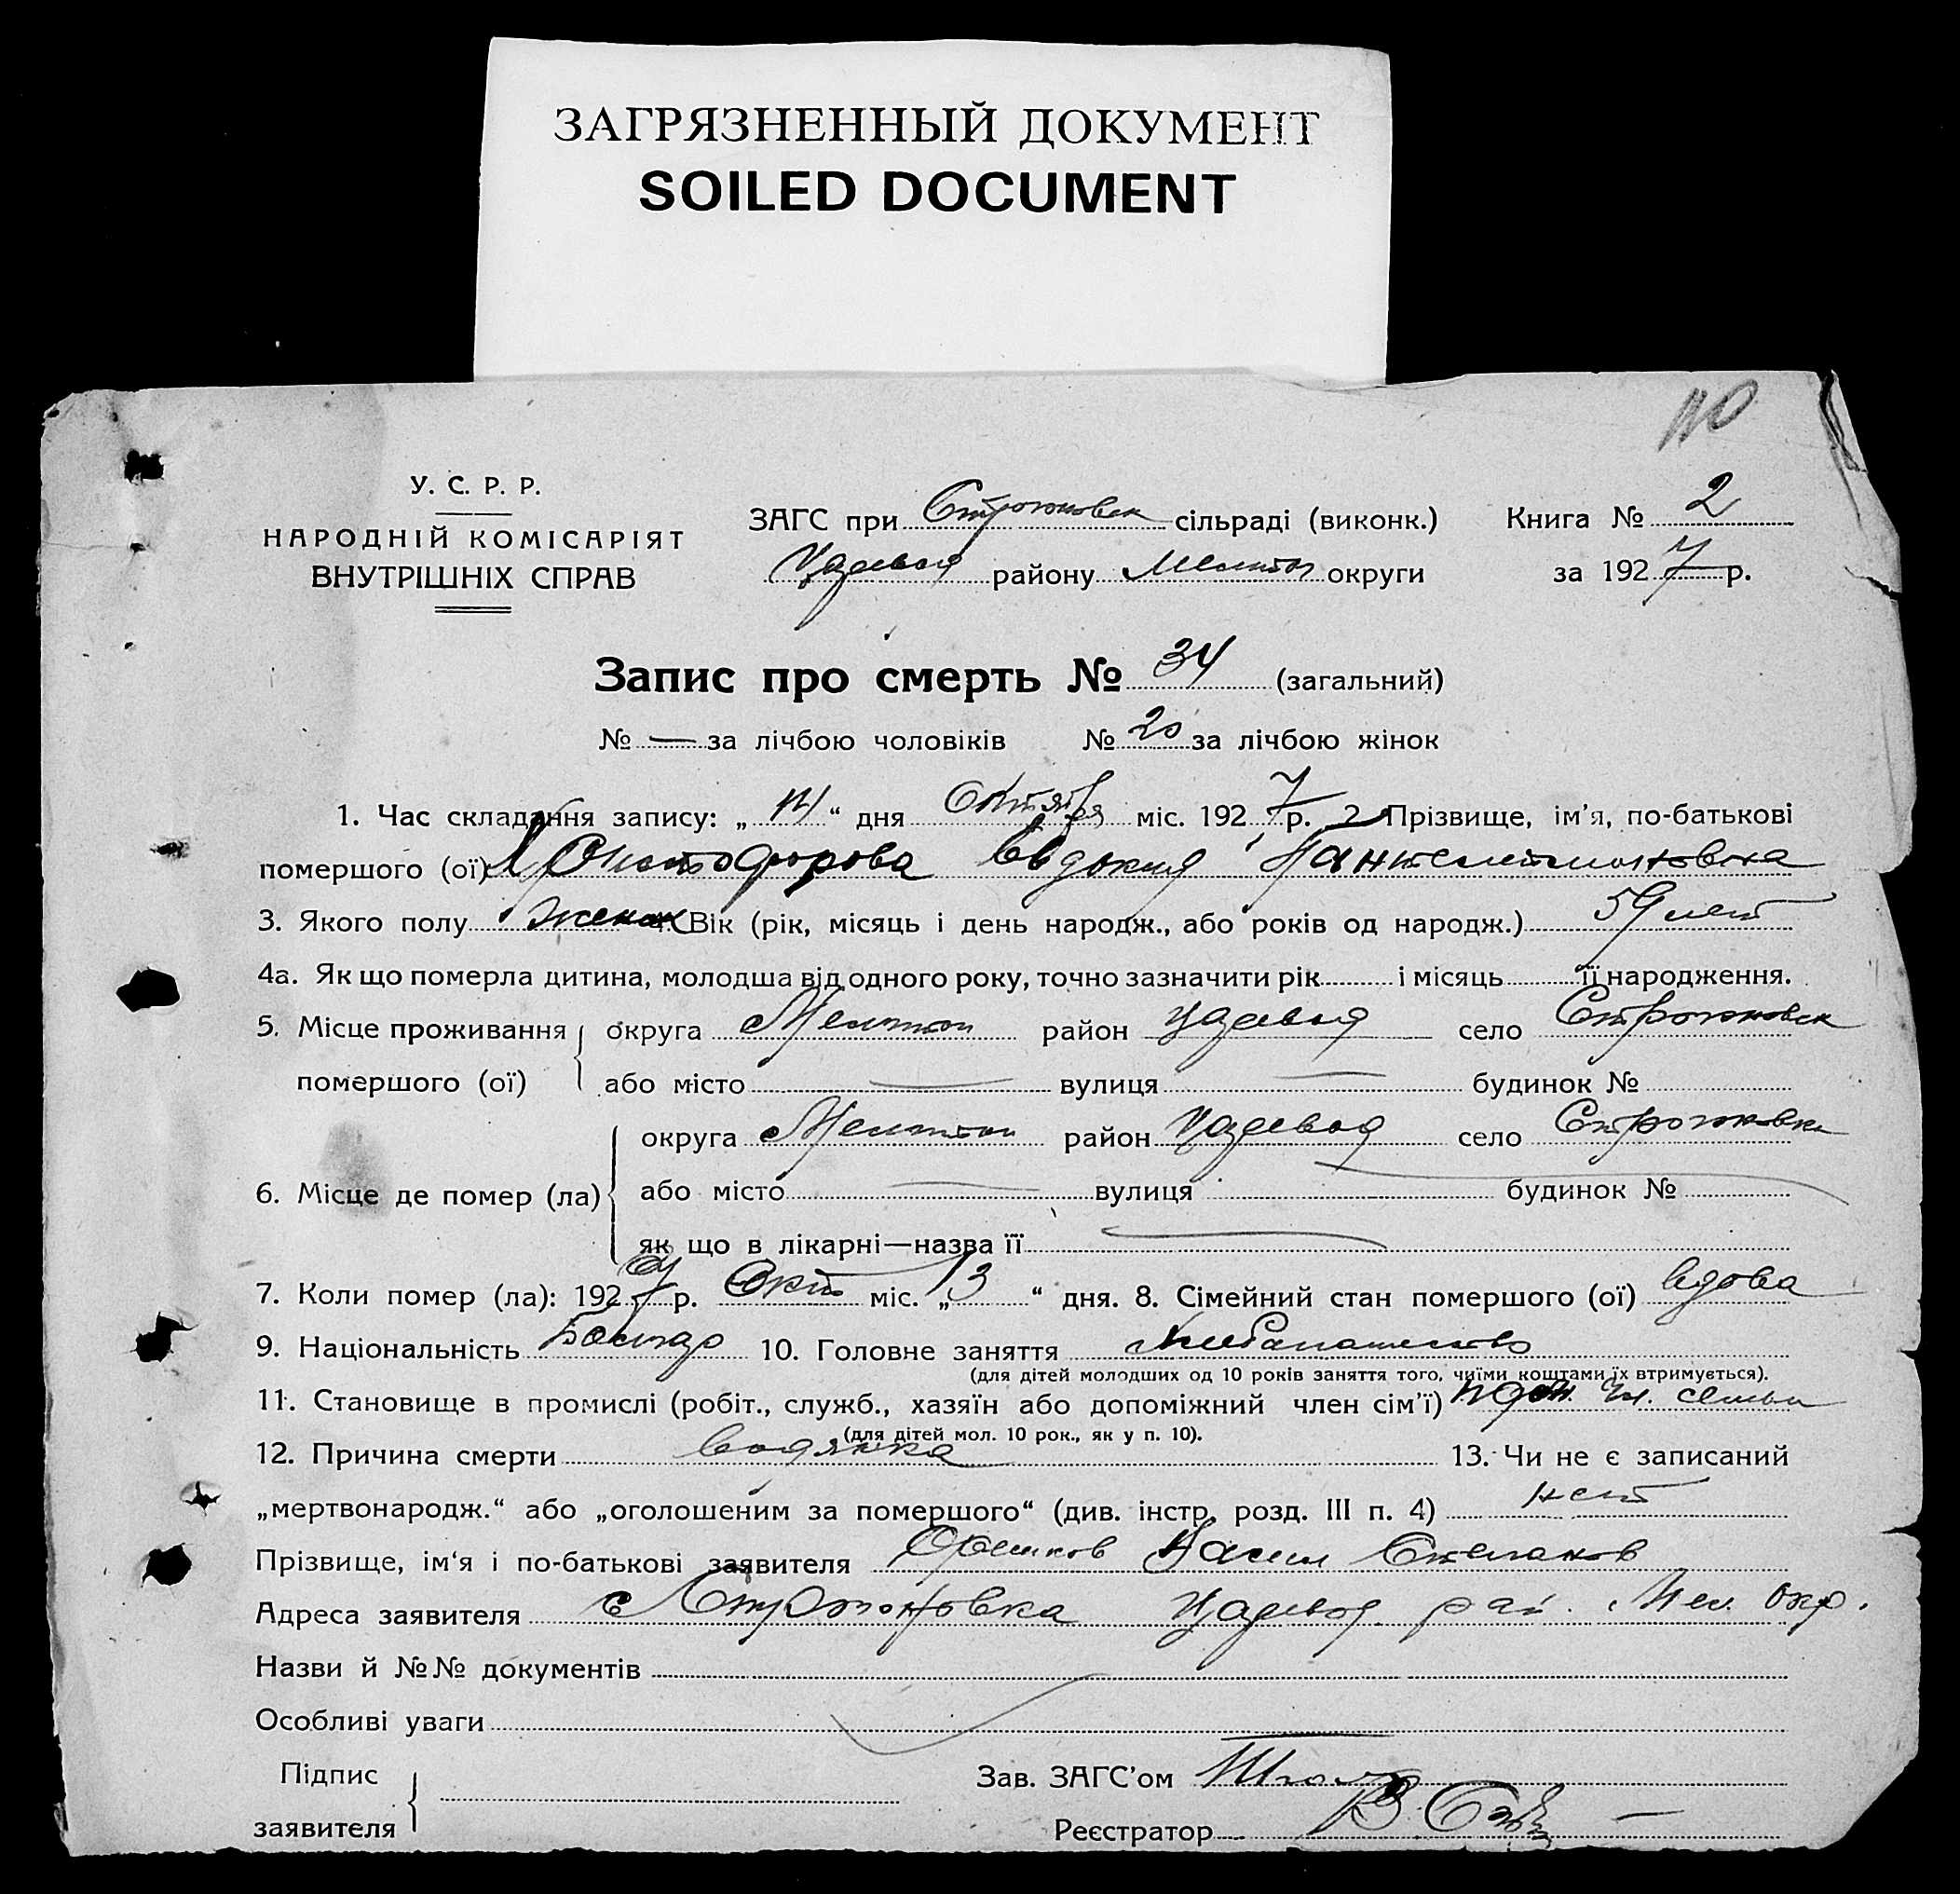 ЗАГРЯЗНЕННЫЙ ДОКУМЕНТ
SOILED DOCUMENT
110
У. С. Р. Р.
НАРОДНІЙ КОМІСАРІЯТ
ВНУТРІШНІХ СПРАВ
ЗАГС при Строгоновск сільраді (виконк.)
Цадевод району Мелитоп округи
Книга № 2
за 1927 р.
Запис про смерть № 34 (загальний)
№ — за лічбою чоловіків № 20 за лічбою жінок
1. Час складання запису: „14“ дня Октября міс. 1927 р. 2. Прізвище, ім'я, по-батькові
помершого (ої) Христофорова Евдокия Пантелеймоновна
3. Якого полу женск Вік (рік, місяць і день народж., або років од народж.) 59 лет
4а. Як що померла дитина, молодша від одного року, точно зазначити рік і місяць її народження.
5. Місце проживання помершого (ої) округа Мелитоп район Цадевод село Строгоновк
або місто — вулиця — будинок №
6. Місце де помер (ла) округа Мелитоп район Цадевод село Строгоновка
або місто — вулиця будинок №
як що в лікарні—назва її —
7. Коли помер (ла): 1927 р. Окт міс. „13“ дня. 8. Сімейний стан помершого (ої) вдова
9. Національність Болгар 10. Головне заняття Хлебопашество
(для дітей молодших од 10 років заняття того, чиїми коштами їх втримується).
11. Становище в промислі (робіт., служб., хазяїн або допоміжний член сім'ї) чл. семьи
(для дітей мол. 10 рок., як у п. 10).
12. Причина смерти водянка 13. Чи не є записаний
„мертвонародж.“ або „оголошеним за помершого“ (див. інстр. розд. III п. 4) нет
Прізвище, ім‘я і по-батькові заявителя Орешков Степанов
Адреса заявителя с Строгоновка Цадевод рай. Мел. окр.
Назви й №№ документів
Особливі уваги
Підпис
заявителя
Зав. ЗАГС'ом
Реєстратор